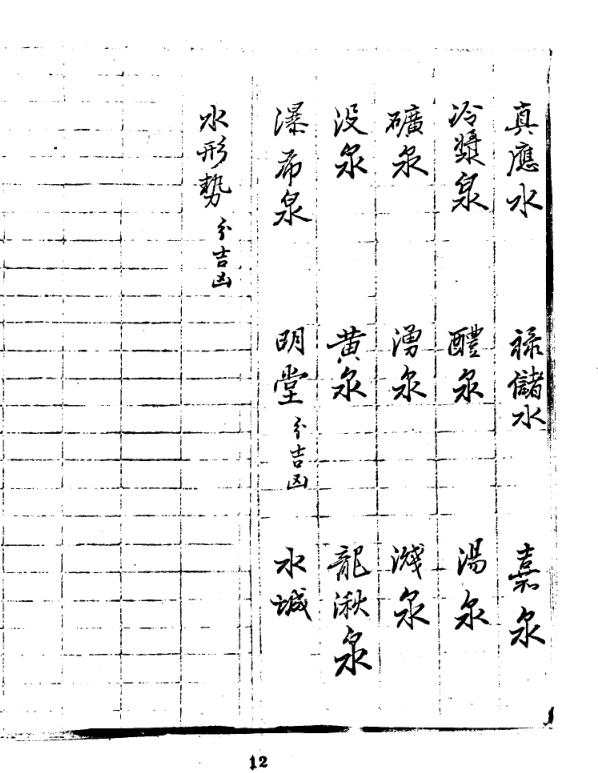 真應水 祿儲水 嘉泉
冷漿泉 醴泉 湯泉
礦泉 湧泉 濺泉
沒泉 黃泉 龍湫泉
瀑布泉 明堂分吉凶 水城
水形勢分吉凶
12